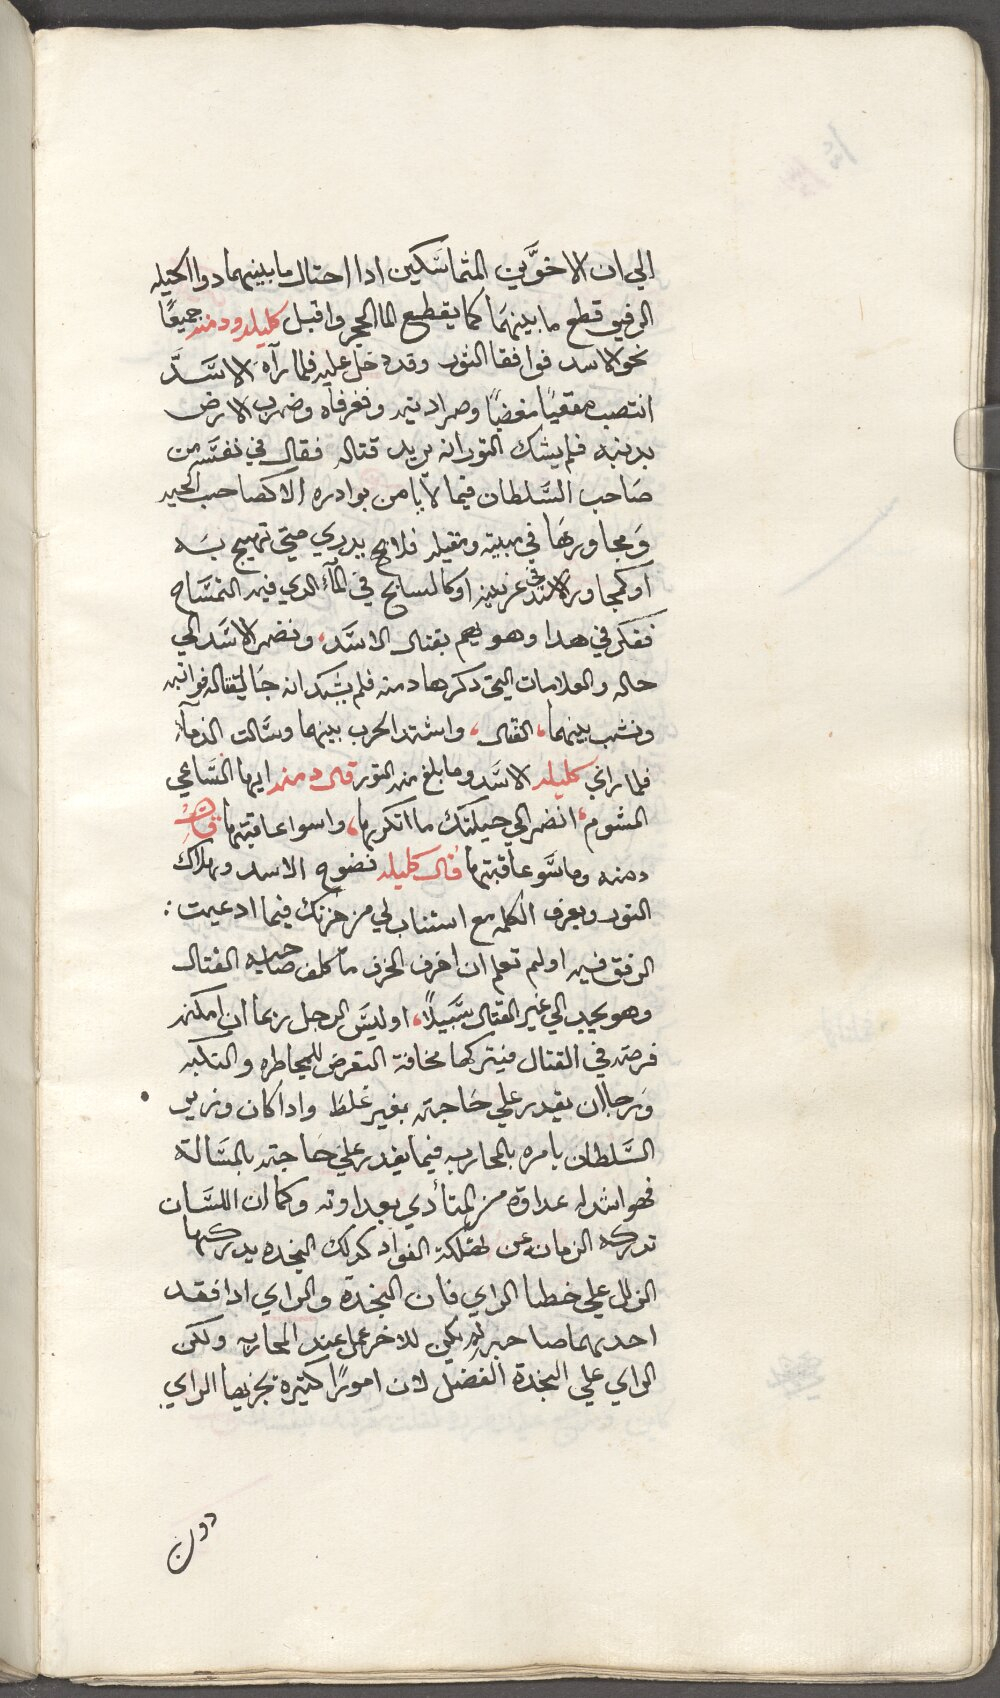 الي ان الاخوَّين المتماسَكين ادا احتال ما بينهما دوا الحيله
الرفيق قطع ما بينهمَا كما يقطع الما الحجر واقبل كليله ودمنه جميعًا
نحو الاسد فوافقا التور وقد دخل عليه فلما رآه الاسَّد
انتصب مقعيًا مغضبًا وصر ادنيه وفغر فاه وضرب الارض
بدنبه فلم يشك التور انه يريد قتاله فقال في نفسَه من
صَاحب السَّلطان فيما لا يامن بوادره الا كصاحب الحيه
وَمجاورهَا في مبيته ومقيله فلا يدري متي تهيج به
او كمجاور الاسَد في عرينه او كالسابح في المآء الدي فيه التمسَاح
ففكر في هدا وهو يهم بقتال الاسَّد، ونضر الاسَّد الي
حاله والعلامات التي دكرها دمنه فلم يشك انه جَا لقتاله فواتبه
ونشب بينهما، القتال، واشتد الحرب بينهما وسَالت الدمآء
فلما راي كليله الاسَّد وما بلغ من التور قال دمنه ايها السَاعي
المشوم، انضر الي حيلتك ما انكرها، واسوا عاقبتها قال
دمنه وما سَّو عاقبتها قال كليله نضوح الاسد وهلاك
التور وبعرف الكلمه مع استناب لي من خرتك فيما ادعيت:
الرفق فيه اولم تعلم ان اخرق الخرق ما كلف صاحبه القتال
وهو يجد الي غير القتال سَّبيلًا، اوليسَ الرجل ربما ان امكنه
فرصه في القتال فيتركها مخافة التعرض للمخاطره والنكبه
وَرجا ان يقدر علي حَاجته بغير غلظ وادا كان وزير
السَّلطان يامره بالمحاربه فيما يقدر علي حَاجته بالمسَالة
فهو اشد له عداوة من المتأدي بعداوته وكما ان اللسَّان
تدركه الزمانه عن هلكة الفواد كدلك النجده يدركها
الزلل علي خطا الراي فان النجدة والراي ادا فقد
احدهما صاحبه لم يكن للاخر عمل عند المحاربه ولكن
الراي علي النجدة الفضل لان امورًا كتيره يجزيها الراي
دون